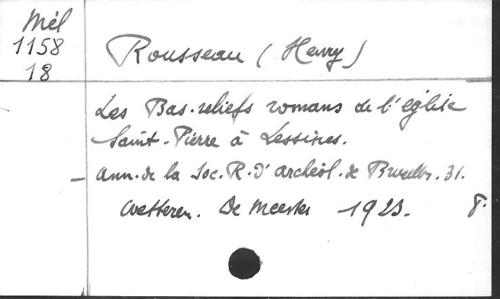 Mél
1158
18
Rousseau (Henry)
Les Bas-reliefs romans de l'église
Saint-Pierre à Lessines.
- Ann. de la Soc. R. d'archéol. de Bruxelles. 31.
Wetteren. De Meester 1923. 8.